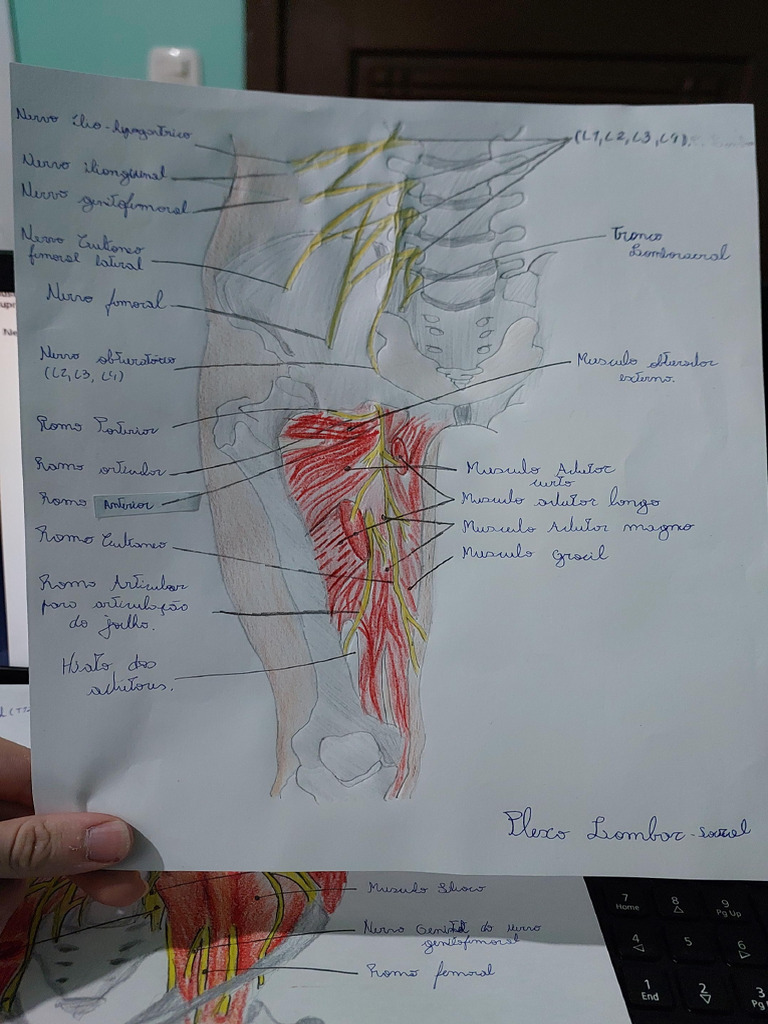 Nervo ílio-hipogástrico
Nervo ilioinguinal
Nervo genitofemoral
Nervo Cutâneo
femoral lateral
Nervo femoral
Nervo obturatório
(L2, L3, L4)
Ramo Posterior
Ramo
Ramo Anterior
Ramo Cutâneo
Ramo Articular
para articulação
do joelho.
Hiato dos
adutores.
(L1, L2, L3, L4).
Tronco
Lombosacral
Musculo obturador
externo.
Musculo Adutor
curto
Musculo adutor longo
Musculo Adutor magno
Musculo Gracil
Plexo Lombar-sacral
Musculo Ilíaco
Nervo Genital do nervo
genitofemoral
Ramo femoral
7 8 9
Home Pg Up
4 5 6
1 2 3
End